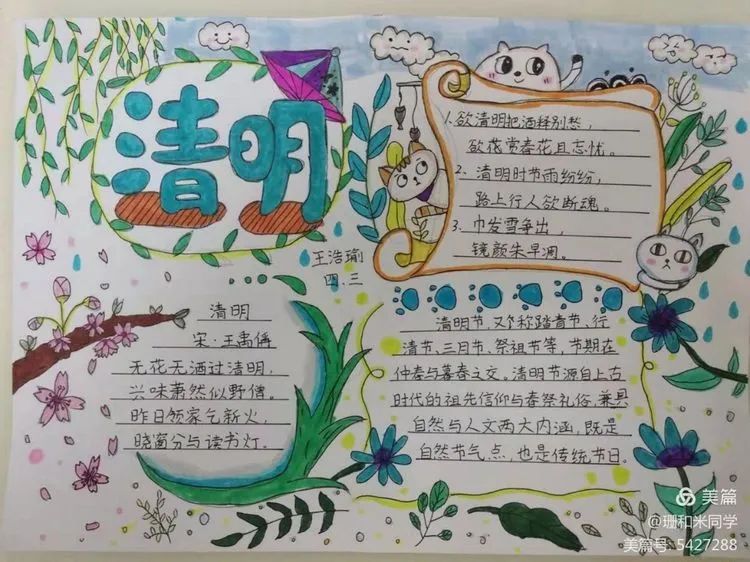 清明
1、欲清明把酒释别愁，
欲花赏春花且忘忧。
2、清明时节雨纷纷，
路上行人欲断魂。
3、巾发雪争出，
镜颜朱早凋。
王浩瑜
四.三
清明
宋·王禹偁
无花无酒过清明，
兴味萧然似野僧。
昨日领家乞新火，
晓窗分与读书灯。
清明节，又称踏青节、行
清节、三月节、祭祖节等，节期在
仲春与暮春之交。清明节源自上古
时代的祖先信仰与春祭礼俗，兼具
自然与人文两大内涵，既是
自然节气点，也是传统节日。
美篇
@珊和米同学
美篇号:5427288